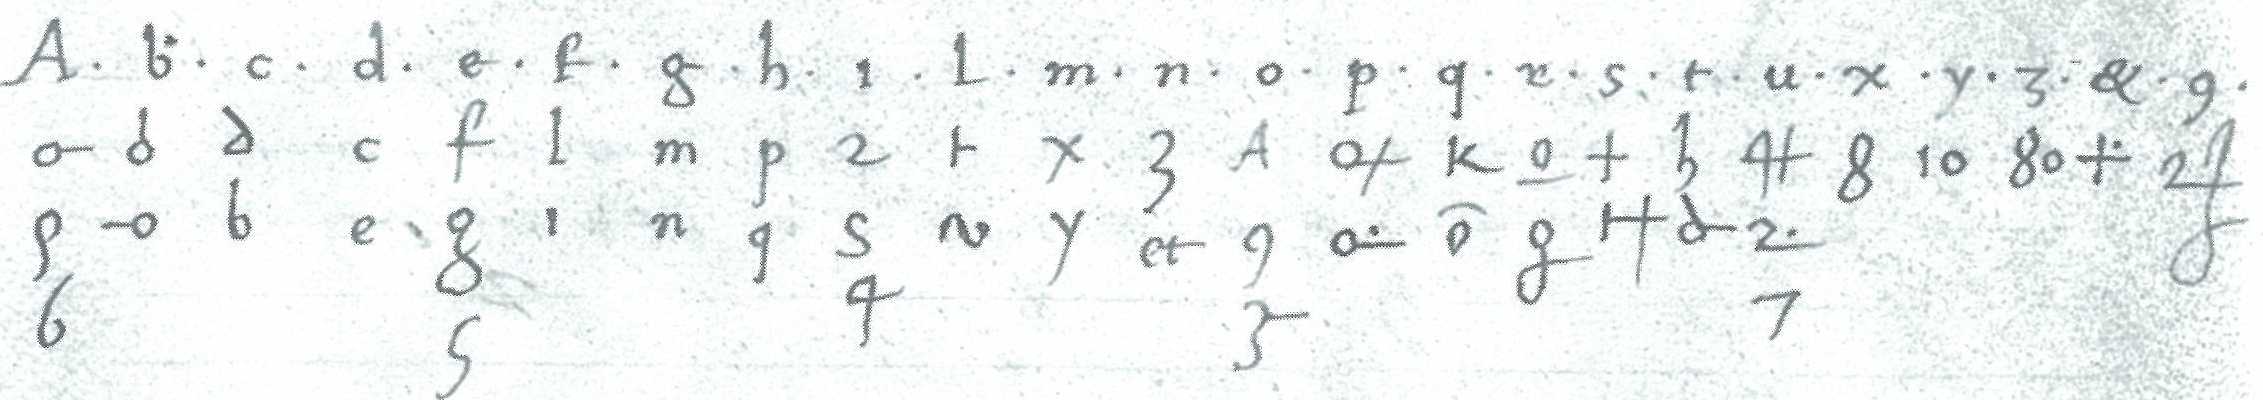 A . b . c . d . e . f . g . h . i . l . m . n . o . p . q . r . s . t . u . x . y . z . & . 9 .
o- d d c f l m p 2 t x 3 A o+ K o + h 4+ 8 10 80 + 2f
p -o b e g i n q s n y et 9 o- ō g H d- 2.
6 5 4 3 7